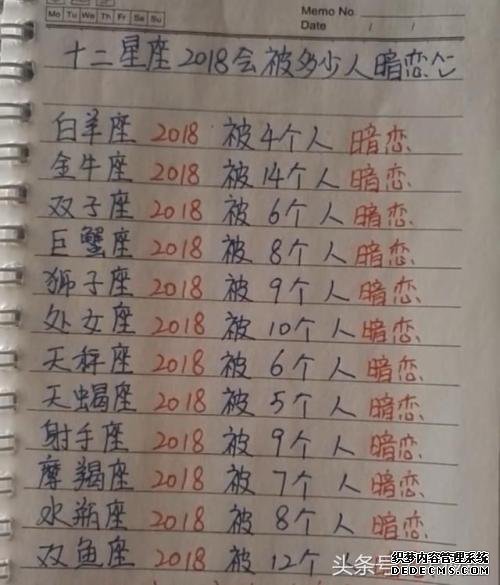 Memo No.
Mo Tu We Th Fr Sa Su
Date / /
十二星座2018会被多少人暗恋
白羊座 2018 被4个人 暗恋
金牛座 2018 被14个人 暗恋
双子座 2018 被6个人 暗恋
巨蟹座 2018 被8个人 暗恋
狮子座 2018 被9个人 暗恋
处女座 2018 被10个人 暗恋
天秤座 2018 被6个人 暗恋
天蝎座 2018 被5个人 暗恋
射手座 2018 被9个人 暗恋
摩羯座 2018 被7个人 暗恋
水瓶座 2018 被8个人 暗恋
双鱼座 2018 被12个
头条号
织梦内容管理系统
DEDECMS.COM